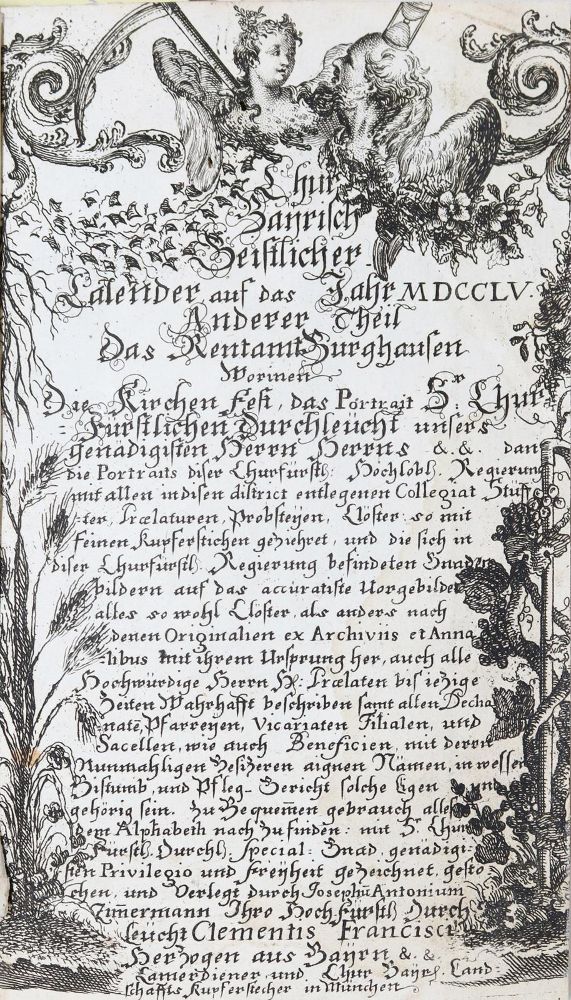 Chur
Bayrisch
Geistlicher
Calender auf das Jahr MDCCLV.
Anderer Theil
Das Rentamt Burghausen
Worinen
Die Kirchen Fest, das Portrait Sr. Chur-
Fürstlichen Durchleucht unsers
genädigisten Herrn Herrns &. &. dan
die Portraits diser Churfürstl: Hochlobl. Regierung
mit allen in disen district entlegenen Collegiat Stüff
ter, Prælaturen, Probsteyen, Clöster: so mit
feinen Kupferstichen geziehret, und die sich in
diser Churfürstl: Regierung befindeten Gnaden
bildern auf das accuratiste Vorgebildet
alles so wohl Clöster, als anders nach
denen Originalien ex Archiviis et Anna
-libus mit ihrem Ursprung her, auch alle
Hochwürdige Herrn H: Prælaten bis iezige
Zeiten Wahrhafft beschriben samt allen Decha
natē, Pfarreyen, Vicariaten Filialen, und
Sacellen, wie auch Beneficien, mit deren
Nunmahligen Besizeren aignen Namen, in welsser
Bistumb, und Pfleg-Gericht solche ligen und
gehörig sein. Zu Bequem̄en gebrauch alles
dem Alphabeth nach Zu finden: mit Sr. Chur
Fürstl. Durchl. Special: Gnad. genädigi-
sten Privilegio und Freyheit gezeichnet, gesto
chen, und Verlegt durch Josephū Antonium
Zim̄ermann Ihro Hoch Fürstl. Durch
leucht Clementis Francisci
Herzogen aus Bayrn &. &.
Camerdiener und Chur Bayrs. Land-
schaffts Kupferstecher in München